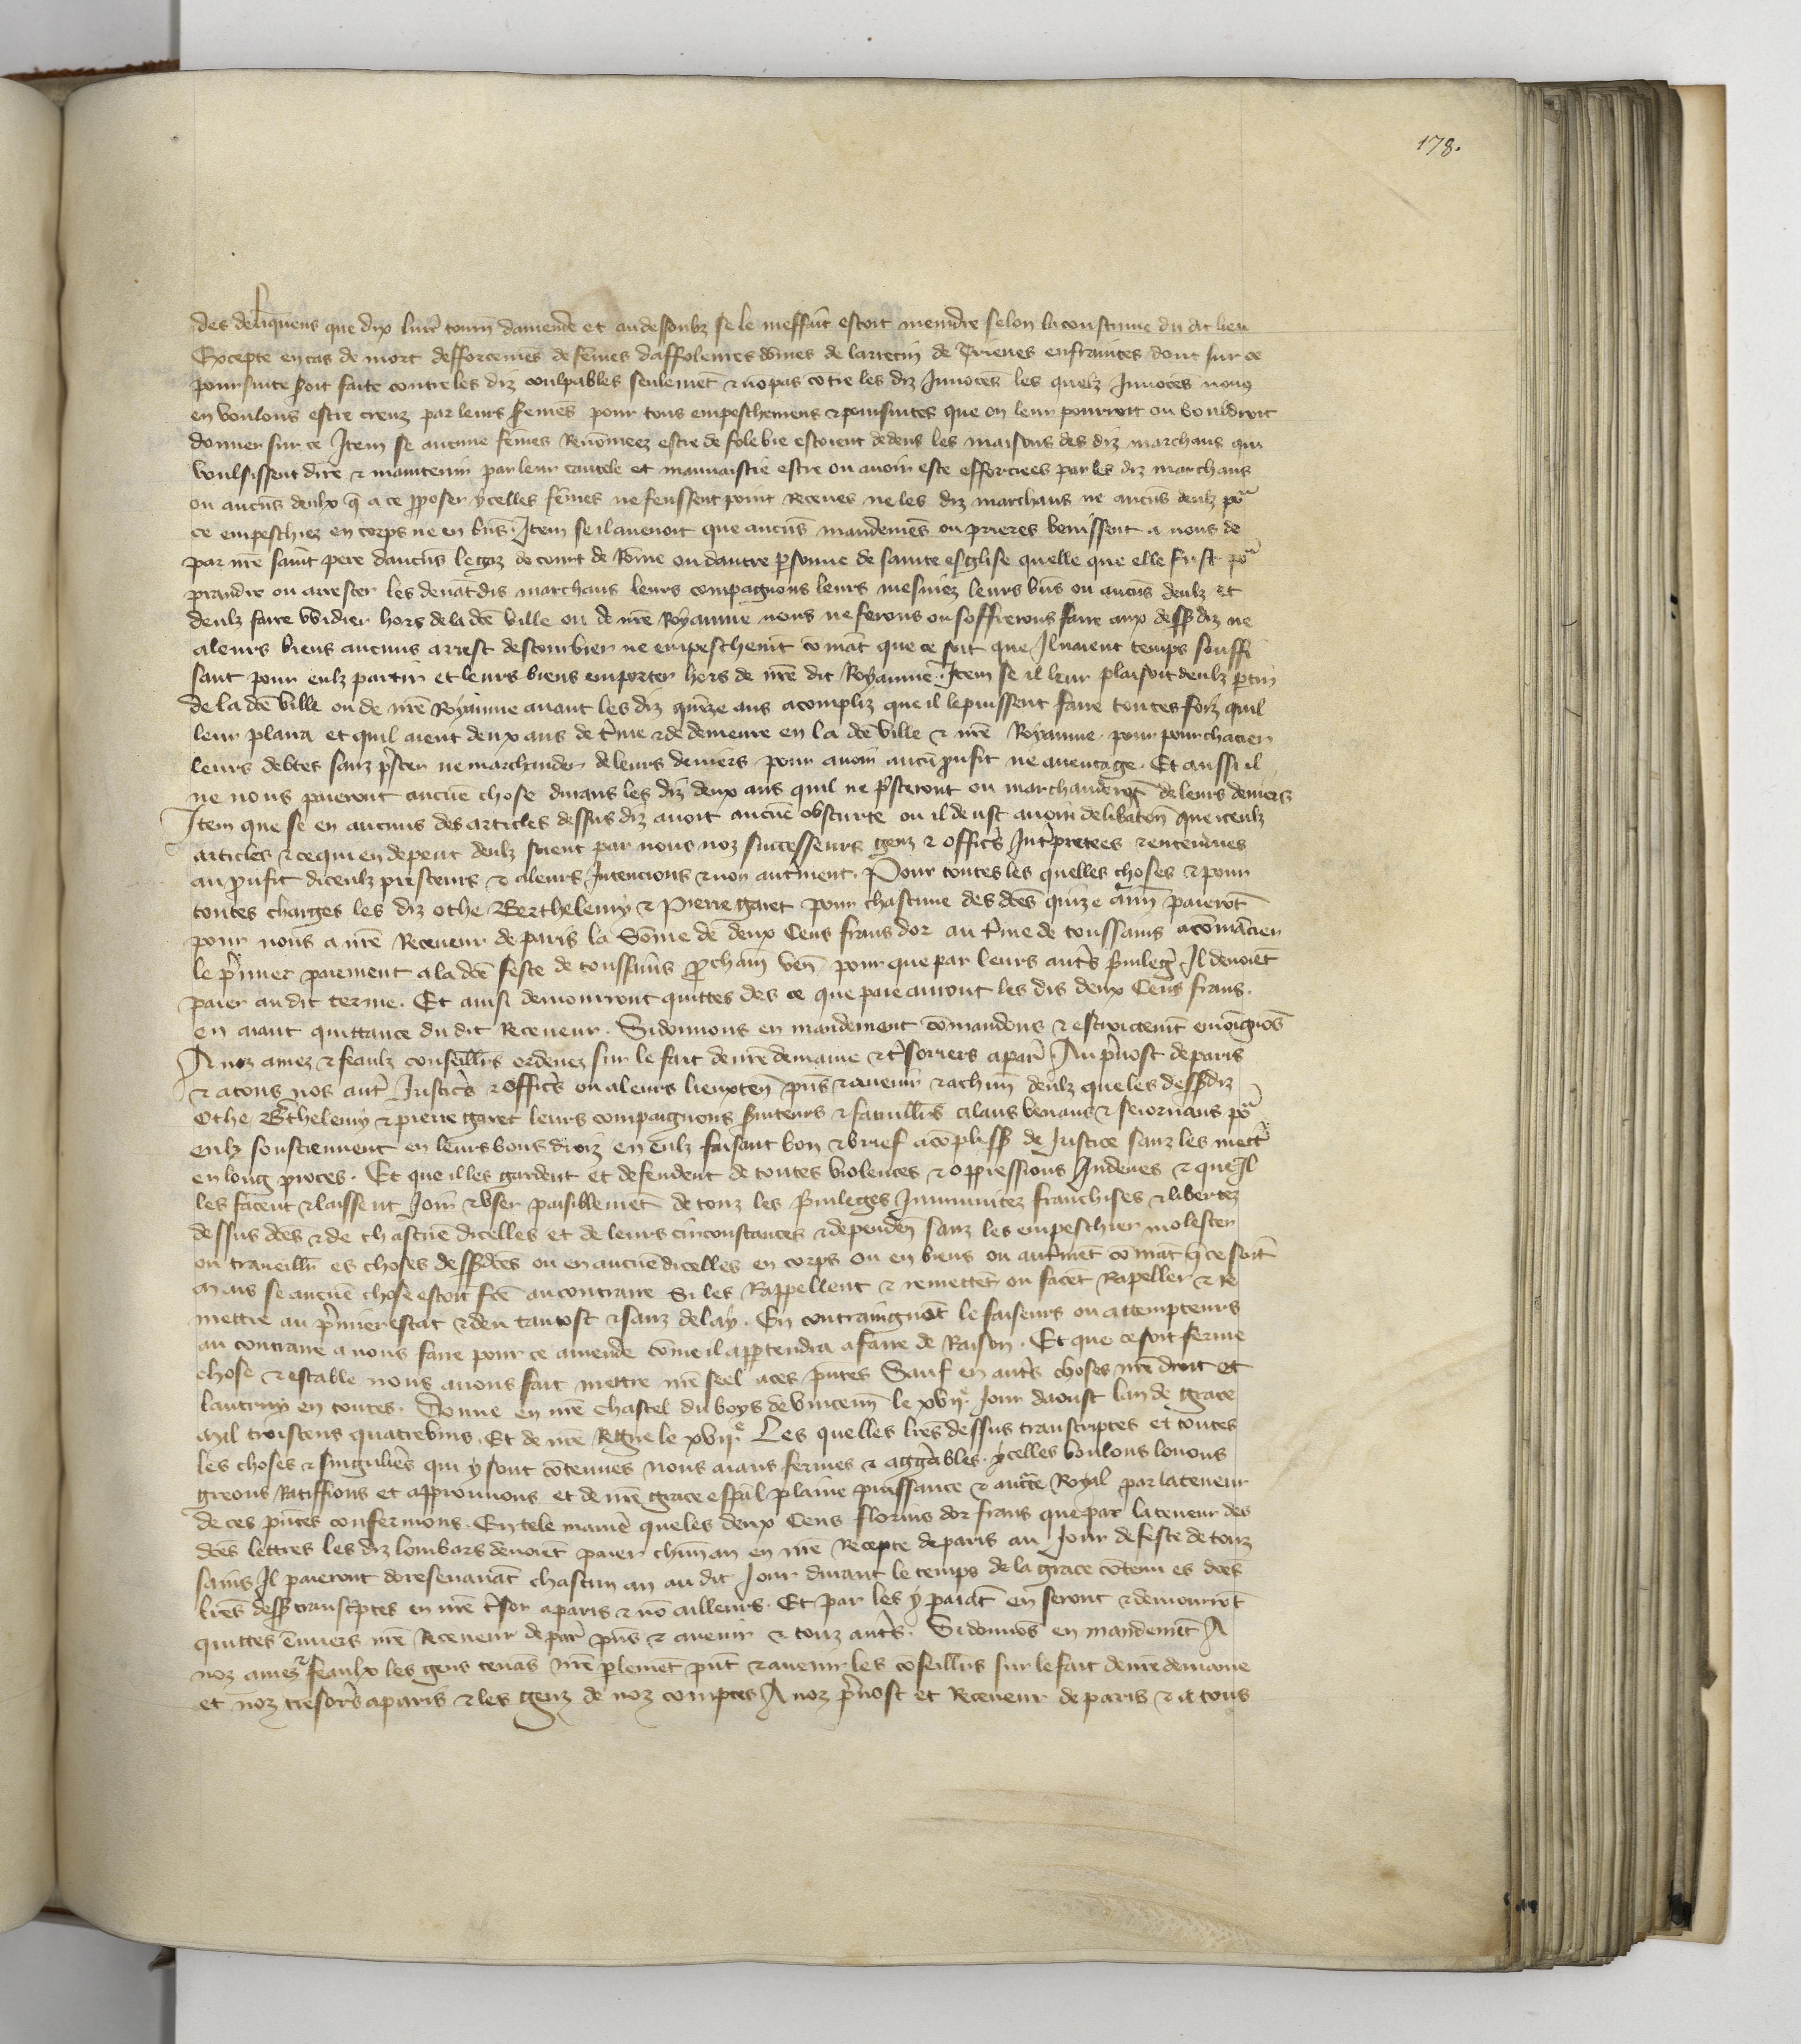 178.
des deliquens que dix livr̃ tourñ damende et au dessoubz se le meffait estoit mendre selon la coustume du dit lieu
Excepte en cas de mort defforcemẽs de fẽmes daffolemẽs dõmes de larrecin de Trieues enfraintes dont sur ce
poursuite soit faite contre les diz coulpables seulemẽt ⁊ nõ pas cõtre les diz Innocẽs les quelz Innocẽs nous
en voulons estre creuz par leurs seremẽs pour tous empeschemens ⁊ poursuites que on leur pourroit ou vouldroit
donner sur ce Item se aucune fẽmes Renõmeez estre de fole vie estoient dedens les maisons des diz marchans qui
voulsissent dire ⁊ maintenir par leur cautele et mauuaistie estre ou auoir este efforciees par les diz marchans
ou aucũs deulx q̃ a ce p̃poser ycelles fẽmes ne feussent point Receues ne les diz marchans ne aucũs deulz põ
ce empeschiez en corps ne en biẽs. Item se il auenoit que aucũs mandemẽs ou prieres venissent a nous de
par nr̃e saint pere daucũs legaz de court de Rõme ou dautre p̃sonne de sainte esglise quelle que elle fust põ
prandre ou arrester les deuãt dis marchans leurs compagnons leurs mesniez leurs biẽs ou aucũs deulz et
deulz faire widier hors de la dc̃e ville ou de nr̃e Royaume nous ne ferons ou soffrerons faire aux dess9 diz ne
a leurs biens aucuns arrest destourbier ne empeschemt̃ cõmãt que ce soit que Il naient temps souffi
sant pour eulz partir et leurs biens emporter hors de nr̃e dit Royaume. Item se il leur plaisoit deulz p̃tir
de la dc̃e ville ou de nr̃e Royaume auant les diz quĩze ans acompliz que il le puissent faire toutes foiz quil
leur plaira et quil aient deux ans de t̃me ⁊ de demeure en la dc̃e ville ⁊ nr̃e Royaume pour pourchacier
leurs debtes sanz p̃ster ne marchander de leurs deniers pour auoir aucũ p̃ufit ne auentage. Et aussi il
ne nous paieront aucũe chose durans les diz deux ans quil ne p̃steront ou marchanderõt de leurs deniers
Item que se en aucuns des articles dessus diz auoit aucũe obscurte ou il deust auoir delibatoñ que iceulz
articles ⁊ ce qui en depent deulz soient par nous noz successeurs genz ⁊ offic̃rs Int̃pretees ⁊ entendues
au p̃ufit diceulz presteurs ⁊ a leurs Intencions ⁊ non autr̃ment. Pour toutes les quelles choses ⁊ pour
toutes charges les diz othe Berthelemy ⁊ Pierre garet pour chascune des dc̃es quĩze anñ paierõt
pour nous a nr̃e Receueur de paris la Sõme de deux Cens frans dor au t̃me de toussains a cõmãcier
le p̃mier paiement a la dc̃e feste de toussains p̃chaiñ veñ pour que par leurs autr̃s p̃uileg̃ Il deuoiẽt
paier au dit terme. Et ainsi demourront quittes des ce que paie auront les dis deux Cens frans.
en aiant quittance du dit Receueur. Si donnons en mandement cõmandons ⁊ estroictemt̃ enioignõs
A noz amez ⁊ feaulz conseill̃rs ordenez sur le fait de nr̃e demaine ⁊ tr̃soriers a par̃ Au p̃uost de paris
⁊ a tous nos autr̃ Justic̃rs ⁊ offic̃rs ou a leurs lieuxteñ p̃ns ⁊ auenir ⁊ a chũn deulz que les dess9diz
othe B̃thelemy ⁊ pierre garet leurs compaignons s̃uiteurs ⁊ famill̃rs alans venans ⁊ seiornans põ
eulz soustiennent en leurs bons droiz en eulz faisant bon ⁊ brief acõpliss9 de Justice sanz les mettr̃
en long proces. Et que il les gardent et defendent de toutes violences ⁊ oppressions Indeues ⁊ que Il
les facent ⁊ laissent Joir̃ ⁊ vser paisiblemẽt de touz les p̃uileges Immunitez franchises ⁊ libertez
dessus dc̃es ⁊ de chascũe dicelles et de leurs circonstances ⁊ dependeñ sanz les empeschier molester
ou traueill̃r es choses dess9dc̃es ou en aucũe dicelles en corps ou en biens ou autr̃mẽt cõmãt q̃ ce soit
Mais se aucũe chose estoit fc̃e au contraire Si les Rappellent ⁊ remettẽt ou facẽt Rapeller ⁊ re
mettre au p̃mier estat ⁊ deu tantost ⁊ sanz delay. En contraingnãt le faiseurs ou attempteurs
au contraire a nous faire pour ce amende cõme il app̃tendra a faire de Raison. Et que ce soit ferme
chose ⁊ estable nous auons fait mettre nr̃e seel a ces p̃ntes Sauf en autr̃s choses nr̃e droit et
lautruy en toutes. Donne en nr̃e chastel du boys de vincenñ le xvijᵉ. Jour daoust lan de grace
Mil troiscens quatrevins. Et de nr̃e Regne le xvijᵉ. Les quelles lr̃es dessus transcriptes et toutes
les choses ⁊ singulier̃s qui y sont cõtenues nous aians fermes ⁊ aggr̃ables. ycelles voulons louons
greons Ratiffions et approuuons et de nr̃e grace esp̃al plaine puissance ⁊ auct̃te Royal par la teneur
de ces p̃ntes confermons. En tele manier̃ que les deux Cens florins dor frans que par la teneur des
dc̃es lettres les diz lombars deuoiẽt paier chũn an en nr̃e Recepte de paris au Jour de feste de touz
sains Il paieront doresenauãt chascun an au dit Jour durant le temps de la grace cõtenu es dc̃es
lr̃es dess9 transcr̃ptes en nr̃e tr̃sor a paris ⁊ nõ ailleurs. Et par les y paiãt en seront ⁊ demourrõt
quittes ẽnuers nr̃e Receueur de par̃ p̃ns ⁊ auenir ⁊ touz autr̃s. Si donnõs en mandemẽt A
noz amez ⁊ feaulx les gens tenãs nr̃e p̃lemẽt p̃nt ⁊ auenir les cõseill̃rs sur le fait de nr̃e demaine
et noz tresor̃s a paris ⁊ les genz de noz comptes A noz p̃uost et Receueur de paris ⁊ a tous